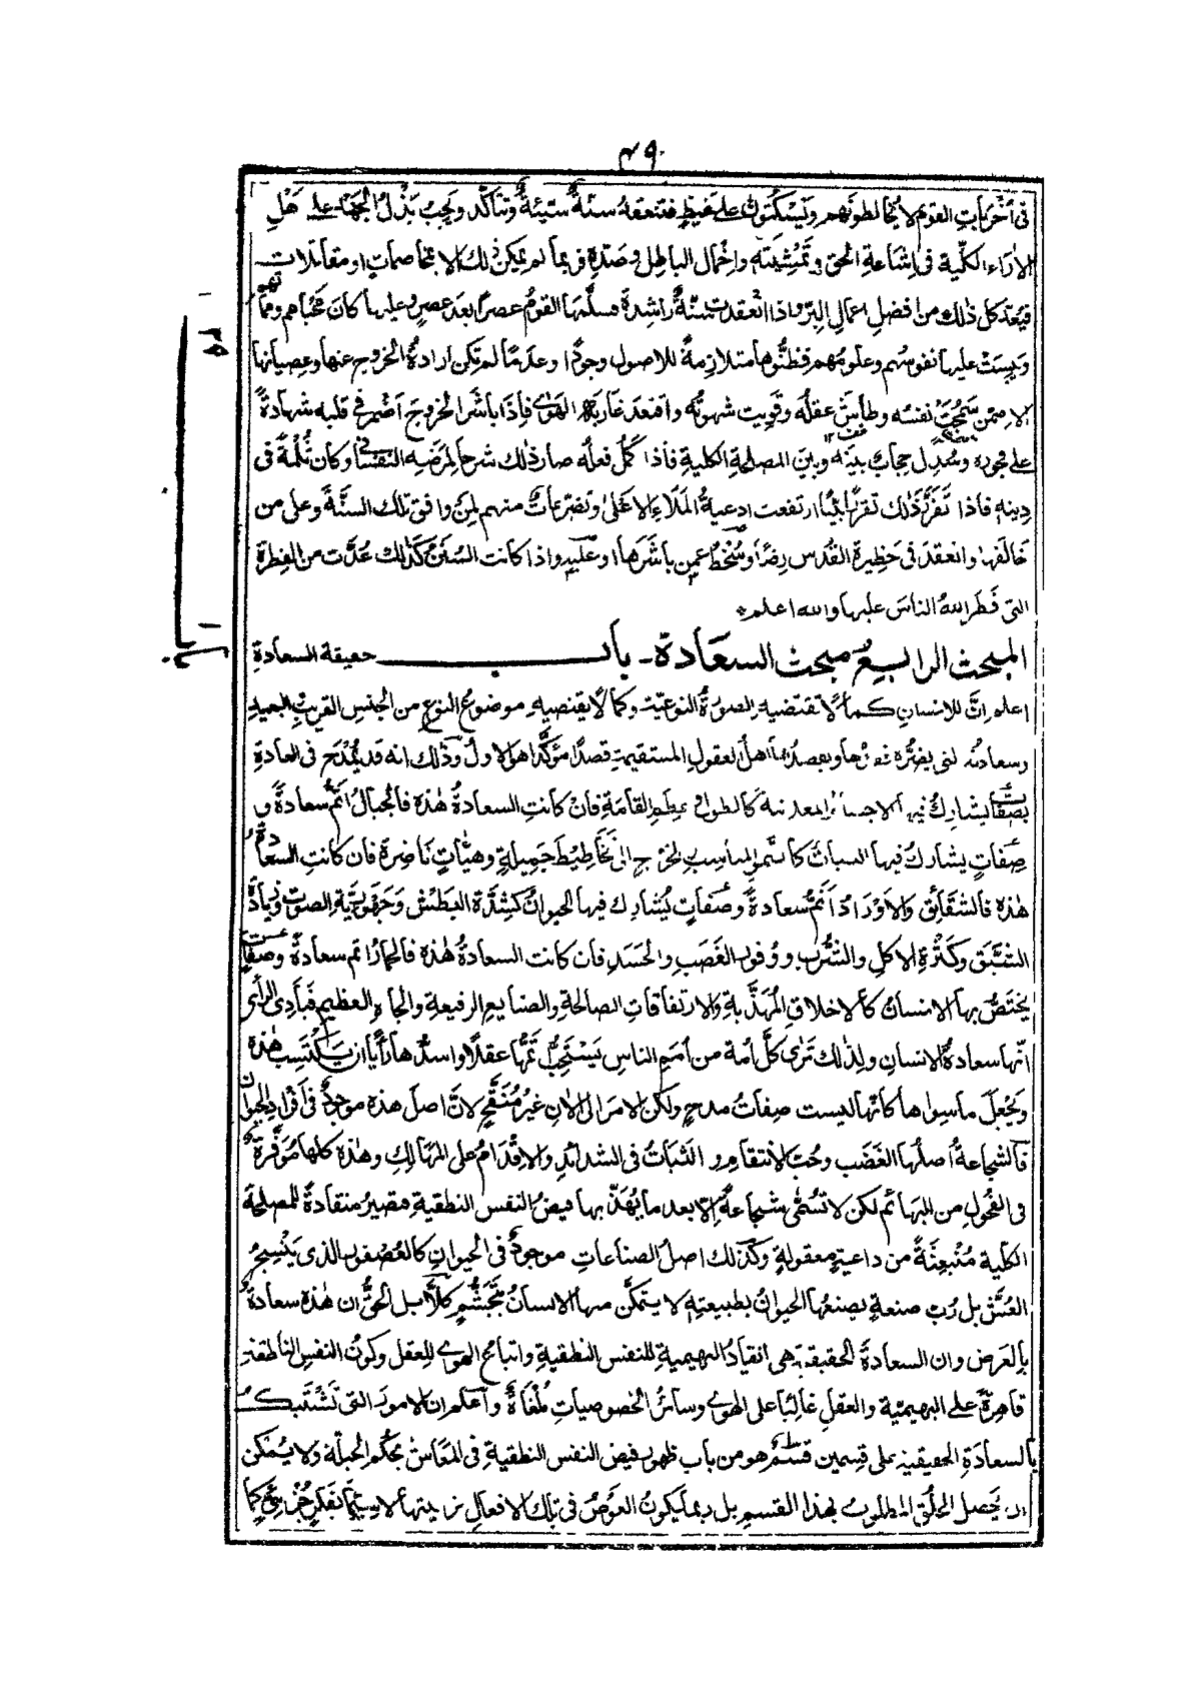 ۴۹
فی اُخریات القوم لا یخالطونهم ویسکتون علی غیظ فتنعقد سنة سیئة وتتاکد ویجب بذل الجهد علی اهل
الاراء الکلیة فی اشاعة الحق وتمشیته واخمال الباطل وصده فربما لم یمکن ذلک الا بمخاصمات او مقاتلات
فیعد کل ذلک من افضل اعمال البر واذا انعقدت سنة راشدة فسلمها القوم عصرا بعد عصر وعلیها کان محیاهم ومماتهم
ویبست علیها نفوسهم وعلومهم فظنوها متلازمة للاصول وجودا وعدما لم تکن ارادة الخروج عنها وعصیانها
الا ممن سمجت نفسه وطاش عقله وقویت شهوته واقتعد غاربه الهوی فاذا باشر الخروج اضمر فی قلبه شهادة
علی فجوره وسدل حجاب بینه وبین المصلحة الکلیة فاذا کمل فعله صار ذلک شرحا لمرضه النفسانی وکان ثلمة فی
دینه فاذا تقرر ذلک تقررا بینا ارتفعت ادعیة الملاء الاعلی وتضرعات منهم لمن وافق تلک السنة وعلی من
خالفها وانعقد فی حظیرة القدس رضا وسخط عمن باشرها او علیه واذا کانت السنن کذلک عدت من الفطرة
التی فطر الله الناس علیها والله اعلم
المبحث الرابع مبحث السعادة ـ باب حقیقة السعادة
اعلم ان للانسان کمالا تقتضیه الصورة النوعیة وکمالا یقتضیه موضوع النوع من الجنس القریب والبعید
وسعادته التی یضره فقدها ویقصدها اهل العقول المستقیمة قصدا مؤکدا هو الاول وذلک انه قد یمدح فی العادة
بصفات یشارک فیها الاجسام المعدنیة کالطول وعظم القامة فان کانت السعادة هذه فالجبال اتم سعادة و
صفات یشارک فیها النبات کالنمو المناسب والخروج الی تخاطیط جمیلة وهیئات ناضرة فان کانت السعادة
هذه فالشقائق والاوراد اتم سعادة وصفات یشارک فیها الحیوان کشدة البطش وجهوریة الصوت وزیادة
الشبق وکثرة الاکل والشرب ووفور الغضب والحسد فان کانت السعادة هذه فالحمار اتم سعادة وصفات
یختص بها الانسان کالاخلاق المهذبة والارتفاقات الصالحة والصنایع الرفیعة والجاه العظیم فبادی الرأی
انها سعادة الانسان ولذلک تری کل امة من امم الناس یستحب اتمها عقلا واسدها رأیا ان یکتسب هذه
ویجعل ما سواها کانها لیست صفات مدح ولکن الامر الی الان غیر منقح لان اصل هذه موجود فی افراد الحیوان
فالشجاعة اصلها الغضب وحب الانتقام والثبات فی الشدائد والاقدام علی المهالک وهذه کلها موفرة
فی الفحول من البهائم لکن لا تسمی شجاعة الا بعد ما یهذبها فیض النفس النطقیة فتصیر منقادة للمصلحة
الکلیة منبعثة من داعیة معقولة وکذلک اصل الصناعات موجود فی الحیوان کالعصفور الذی ینسج
العش بل رب صنعة یصنعها الحیوان بطبیعته لا یتمکن منها الانسان بتجشم کلا بل الحق ان هذه سعادة
بالعرض وان السعادة الحقیقیة هی انقیاد البهیمیة للنفس النطقیة واتباع الهوی للعقل وکون النفس الناطقة
قاهرة علی البهیمیة والعقل غالبا علی الهوی وسائر الخصوصیات ملغاة واعلم ان الامور التی تشتبک
بالسعادة الحقیقیة علی قسمین قسم هو من باب ظهور فیض النفس النطقیة فی المعاش بحکم الجبلة ولا یمکن
ان یحصل الخلق المطلوب بهذا القسم بل ربما یکون الغوص فی تلک الافعال بزینتها لا سیما بفکر جزئی کما